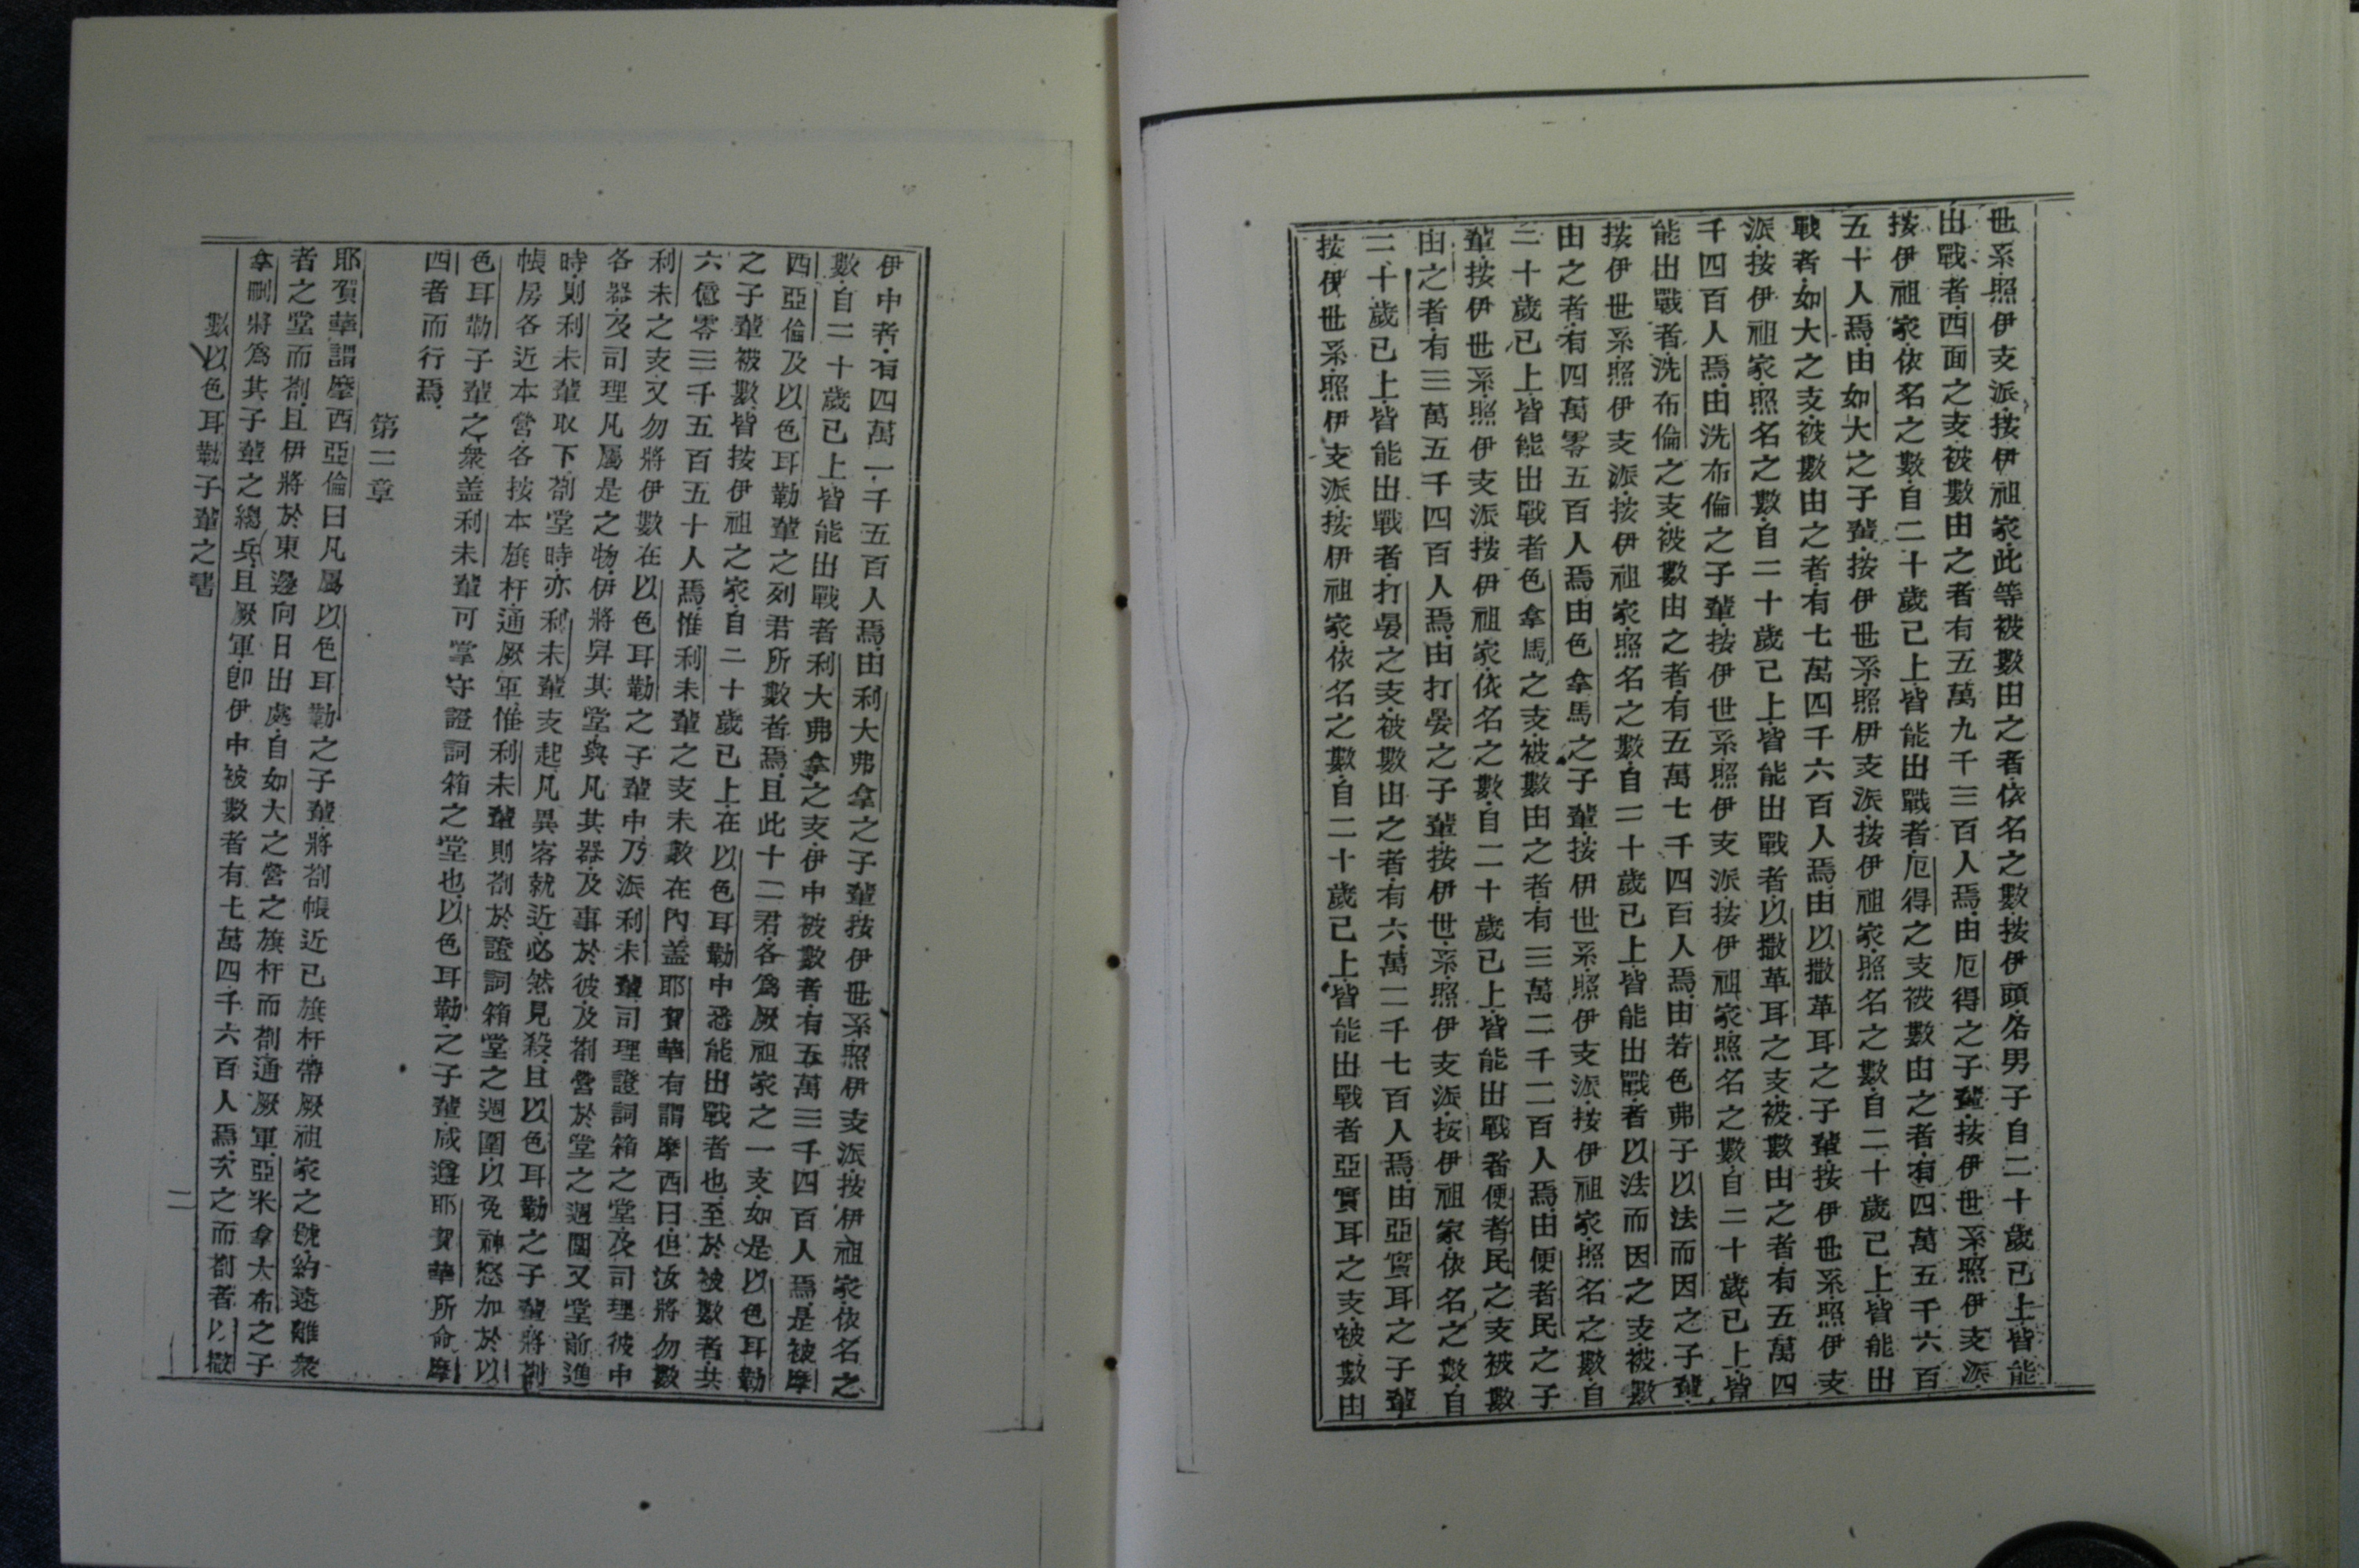 世系照伊支派按伊祖家此等被數由之者依名之數按伊頭各男子自二十歲已上皆能
出戰者西面之支被數由之者有五萬九千三百人焉由厄得之子輩按伊世系照伊支派
按伊祖家依名之數自二十歲已上皆能出戰者厄得之支被數由之者有四萬五千六百
五十人焉由如大之子輩按伊世系照伊支派按伊祖家照名之數自二十歲已上皆能出
戰者如大之支被數由之者有七萬四千六百人焉由以撒革耳之子輩按伊世系照伊支
派按伊祖家照名之數自二十歲已上皆能出戰者以撒革耳之支被數由之者有五萬四
千四百人焉由洗布倫之子輩按伊世系照伊支派按伊祖家照名之數自二十歲已上皆
能出戰者洗布倫之支被數由之者有五萬七千四百人焉由若色弗子以法而因之子輩
按伊世系照伊支派按伊祖家照名之數自二十歲已上皆能出戰者以法而因之支被數
由之者有四萬零五百人焉由色拿馬之子輩按伊世系照伊支派按伊祖家照名之數自
二十歲已上皆能出戰者色拿馬之支被數由之者有三萬二千二百人焉由便者民之子
輩按伊世系照伊支派按伊祖家依名之數自二十歲已上皆能出戰者便者民之支被數
由之者有三萬五千四百人焉由打晏之子輩按伊世系照伊支派按伊祖家依名之數自
二十歲已上皆能出戰者打晏之支被數由之者有六萬二千七百人焉由亞實耳之子輩
按伊世系照伊支派按伊祖家依名之數自二十歲已上皆能出戰者亞實耳之支被數由
伊中者有四萬一千五百人焉由利大弗拿之子輩按伊世系照伊支派按伊祖家依名之
數自二十歲已上皆能出戰者利大弗拿之支伊中被數者有五萬三千四百人焉是被摩
西亞倫及以色耳勒輩之列君所數者焉且此十二君各爲厥祖家之一支如是以色耳勒
之子輩被數皆按伊祖之家自二十歲已上在以色耳勒中悉能出戰者也至於被數者共
六億零三千五百五十人焉惟利未輩之支未數在內蓋耶賀華有謂摩西曰但汝將勿數
利未之支又勿將伊數在以色耳勒之子輩中乃派利未輩司理證詞箱之堂及司理彼中
各器及司理凡屬是之物伊將舁其堂與凡其器及事於彼及劄營於堂之週圍又堂前進
時則利未輩取下劄堂時亦利未輩支起凡異客就近必然見殺且以色耳勒之子輩將劄
帳房各近本營各按本旗杆通厥軍惟利未輩則劄於證詞箱堂之週圍以免神怒加於以
色耳勒子輩之衆蓋利未輩可掌守證詞箱之堂也以色耳勒之子輩咸遵耶賀華所命摩
西者而行焉
第二章
耶賀華謂摩西亞倫曰凡屬以色耳勒之子輩將劄帳近已旗杆帶厥祖家之號約遠離衆
者之堂而劄且伊將於東邊向日出處自如大之營之旗杆而劄通厥軍亞米拿大布之子
拿刪將爲其子輩之總兵且厥軍卽伊中被數者有七萬四千六百人焉次之而劄者以撒
數以色耳勒子輩之書 二